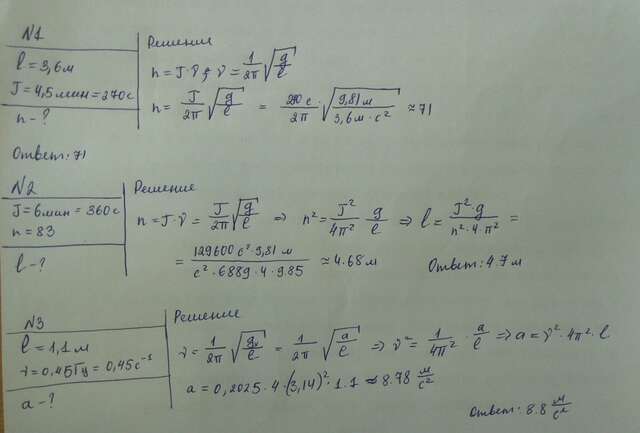 N1
l = 3,6 м
T = 4,5 мин = 270 с
n - ?
Решение
n = T·ν; ν = 1/2π √g/l
n = T/2π √g/l = 270 с/2π · √9,81 м/3,6 м·с² ≈ 71
Ответ: 71
N2
T = 6 мин = 360 с
n = 83
l - ?
Решение
n = T·ν = T/2π √g/l ⇒ n² = T²/4π² g/l ⇒ l = T²·g/n²·4π² =
= 129600 с²·9,81 м/с²·6889·4·9,85 ≈ 4.68 м
Ответ: 4.7 м
N3
l = 1,1 м
ν = 0,45 Гц = 0,45 с⁻¹
a - ?
Решение
ν = 1/2π √g/l = 1/2π √a/l ⇒ ν² = 1/4π² · a/l ⇒ a = ν²·4π²·l
a = 0,2025·4·(3,14)²·1.1 ≈ 8.78 м/с²
Ответ: 8.8 м/с²